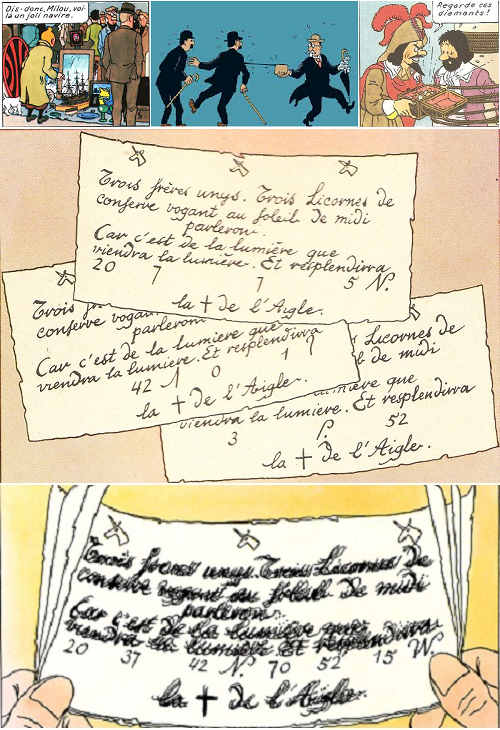 Dis-donc, Milou, voi-
là un joli navire.
Regarde ces
diamants!
Trois frères unys. Trois Licornes de
conserve vogant au soleil de midi
parleron.
Car c'est de la lumière que
viendra la lumière. Et resplendira
20 7 7 5 N.
la ✝ de l'Aigle.
Trois
conserve vogan
parleron
Car c'est de la lumière que
viendra la lumière. Et resplendira
42 1 0 1
la ✝ de l'Aigle.
Licornes de
de midi
mière que
viendra la lumière. Et resplendira
3 52
la ✝ de l'Aigle.
Trois frères unys. Trois Licornes de
conserve vogant au soleil de midi
parleron.
Car c'est de la lumière que
viendra la lumière. Et resplendira
20 37 42 N. 70 52 15 W.
la ✝ de l'Aigle.